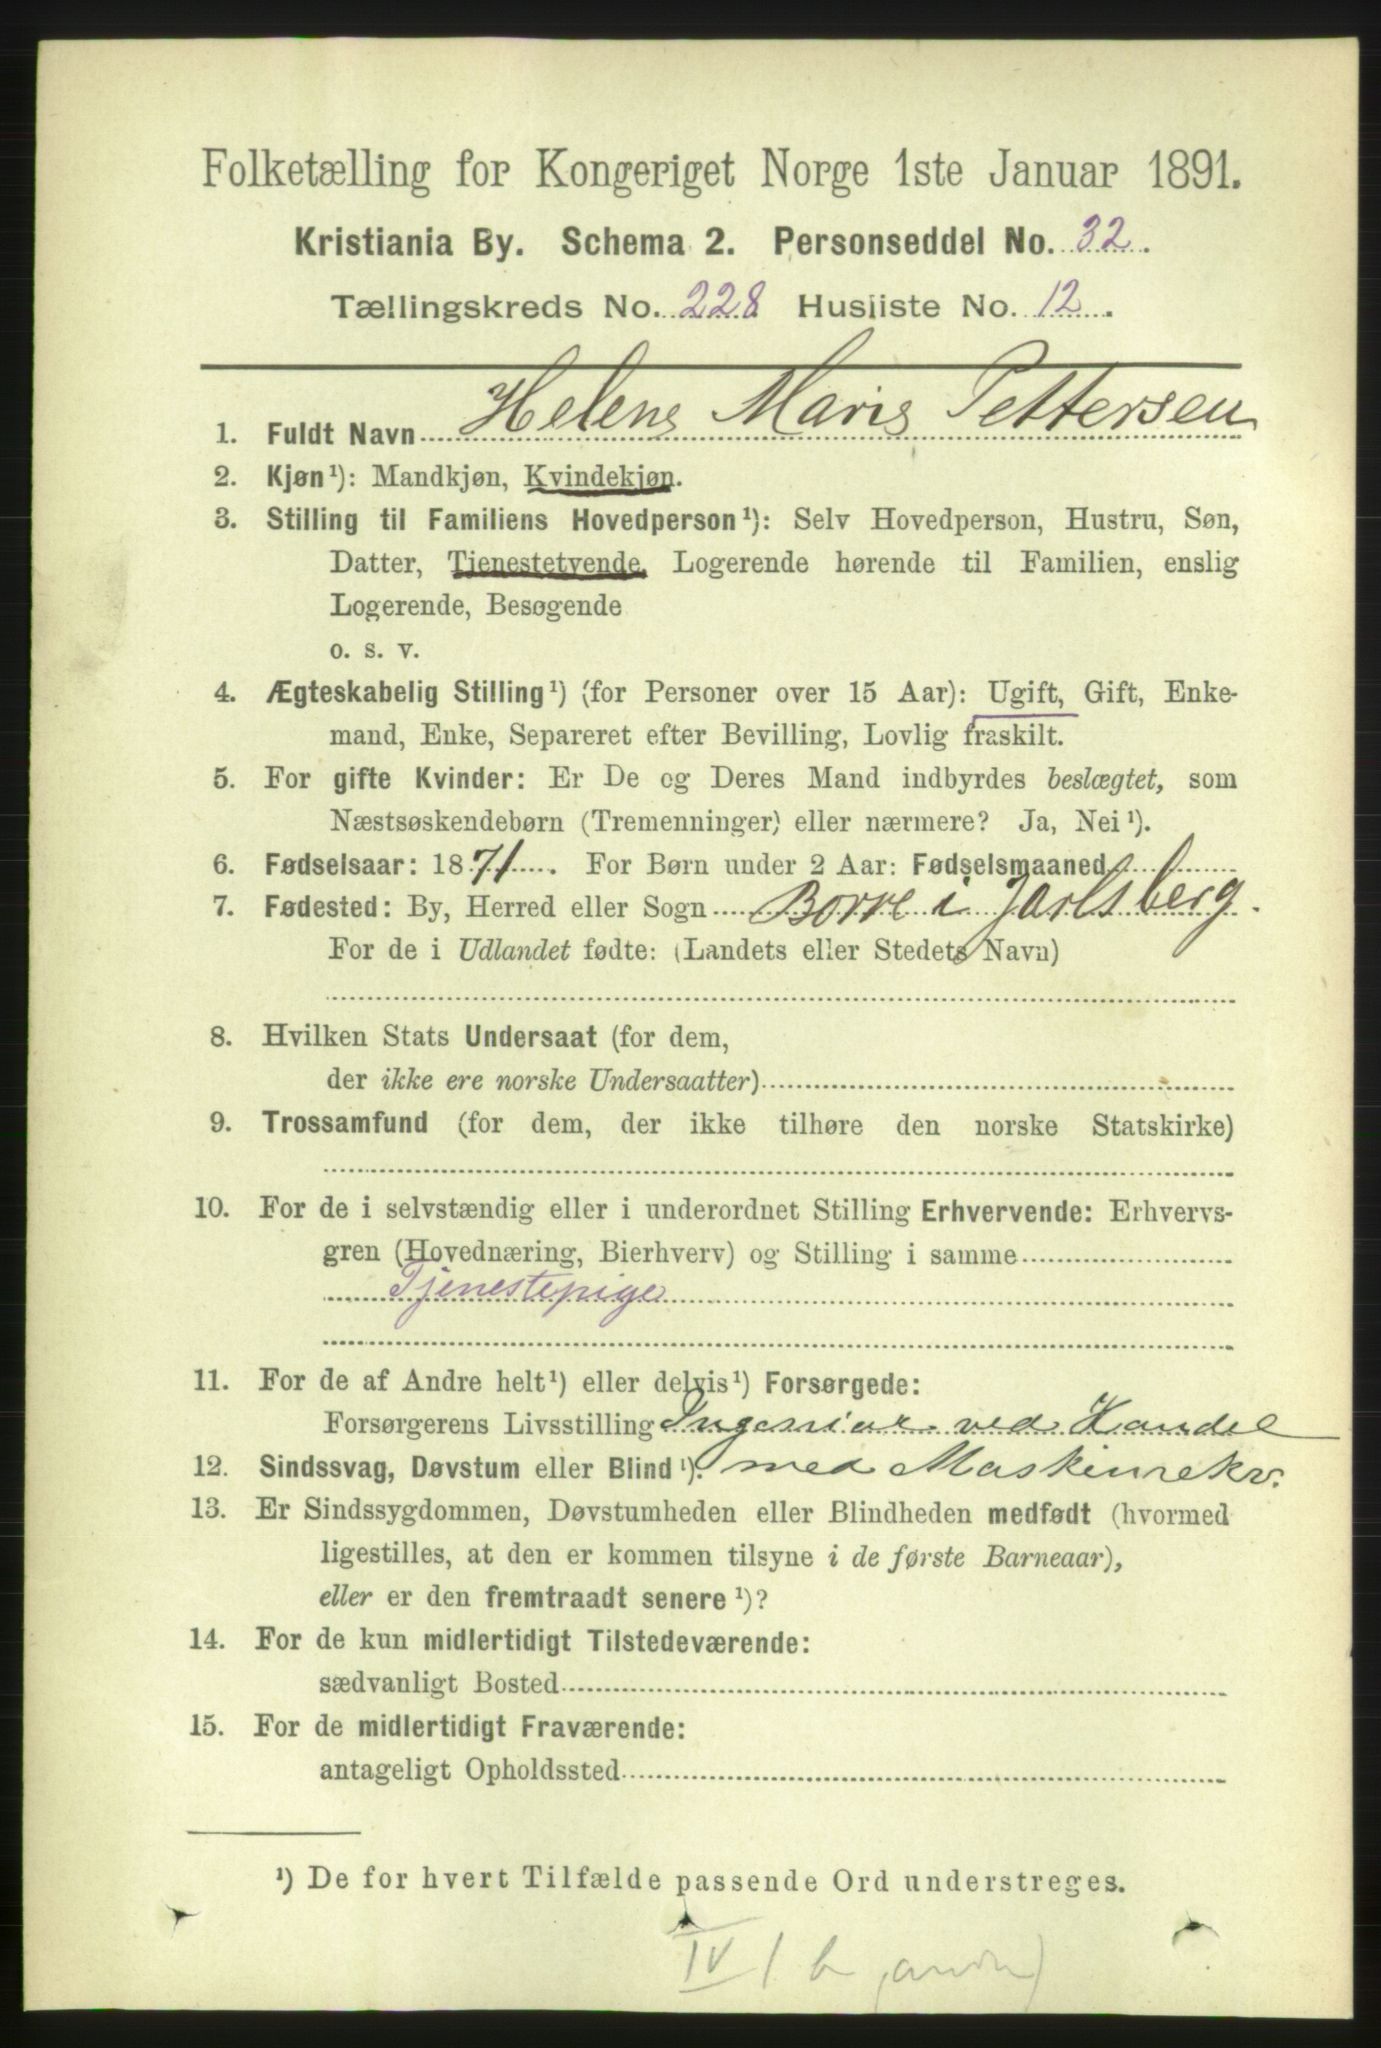 Folketælling for Kongeriget Norge 1ste Januar 1891.
Kristiania By. Schema 2. Personseddel No. 32.
Tællingskreds No. 228 Husliste No. 12.
1. Fuldt Navn Helene Marie Pettersen
2. Kjøn¹): Mandkjøn, Kvindekjøn.
3. Stilling til Familiens Hovedperson¹): Selv Hovedperson, Hustru, Søn,
Datter, Tjenestetyende, Logerende hørende til Familien, enslig
Logerende, Besøgende
o. s. v.
4. Ægteskabelig Stilling¹) (for Personer over 15 Aar): Ugift, Gift, Enke-
mand, Enke, Separeret efter Bevilling, Lovlig fraskilt.
5. For gifte Kvinder: Er De og Deres Mand indbyrdes beslægtet, som
Næstsøskendebørn (Tremenninger) eller nærmere? Ja, Nei¹).
6. Fødselsaar: 1871. For Børn under 2 Aar: Fødselsmaaned
7. Fødested: By, Herred eller Sogn Borre i Jarlsberg.
For de i Udlandet fødte: (Landets eller Stedets Navn)
8. Hvilken Stats Undersaat (for dem,
der ikke ere norske Undersaatter)
9. Trossamfund (for dem, der ikke tilhøre den norske Statskirke)
10. For de i selvstændig eller i underordnet Stilling Erhvervende: Erhvervs-
gren (Hovednæring, Bierhverv) og Stilling i samme
Tjenestepige
11. For de af Andre helt¹) eller delvis¹) Forsørgede:
Forsørgerens Livsstilling Ingeniør ved Handel
12. Sindssvag, Døvstum eller Blind¹). med Maskinrekv.
13. Er Sindssygdommen, Døvstumheden eller Blindheden medfødt (hvormed
ligestilles, at den er kommen tilsyne i de første Barneaar),
eller er den fremtraadt senere¹)?
14. For de kun midlertidigt Tilstedeværende:
sædvanligt Bosted
15. For de midlertidigt Fraværende:
antageligt Opholdssted
¹) De for hvert Tilfælde passende Ord understreges.
IV 1 b